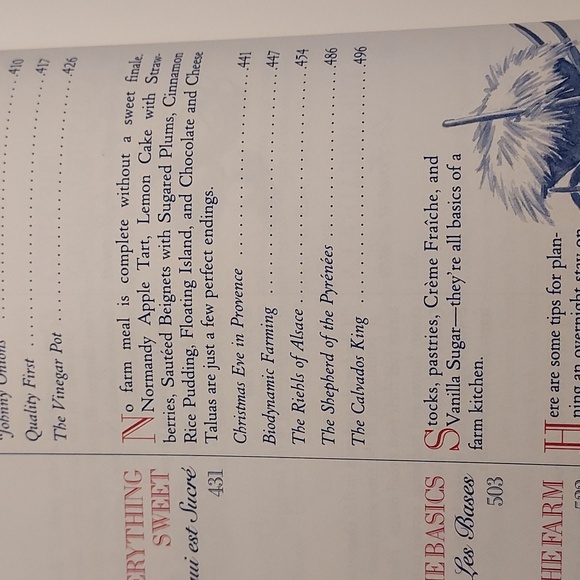 Johnny Onions . . . . . . . . . . 410
Quality First . . . . . . . . . . 417
The Vinegar Pot . . . . . . . . . . 426
ERYTHING
SWEET
ui est Sucré
431
No farm meal is complete without a sweet finale.
Normandy Apple Tart, Lemon Cake with Straw-
berries, Sautéed Beignets with Sugared Plums, Cinnamon
Rice Pudding, Floating Island, and Chocolate and Cheese
Taluas are just a few perfect endings.
Christmas Eve in Provence . . . . . . . . . . 441
Biodynamic Farming . . . . . . . . . . 447
The Riehls of Alsace . . . . . . . . . . 454
The Shepherd of the Pyrénées . . . . . . . . . . 486
The Calvados King . . . . . . . . . . 496
E BASICS
Les Bases
503
Stocks, pastries, Crème Fraîche, and
Vanilla Sugar—they're all basics of a
farm kitchen.
HE FARM
Here are some tips for plan-